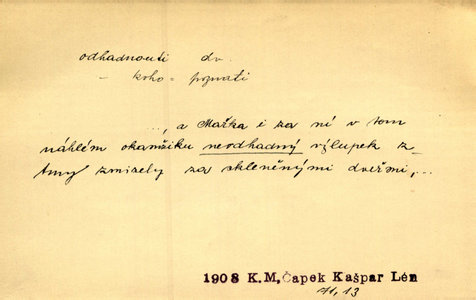 odhadnouti dv.
– koho = poznati
..., a Mařka i za ní v tom
náhlém okamžiku neodhadný výlupek z
tmy zmizely za skleněnými dveřmi,...
1908 K.M,Čapek Kašpar Lén
71, 13